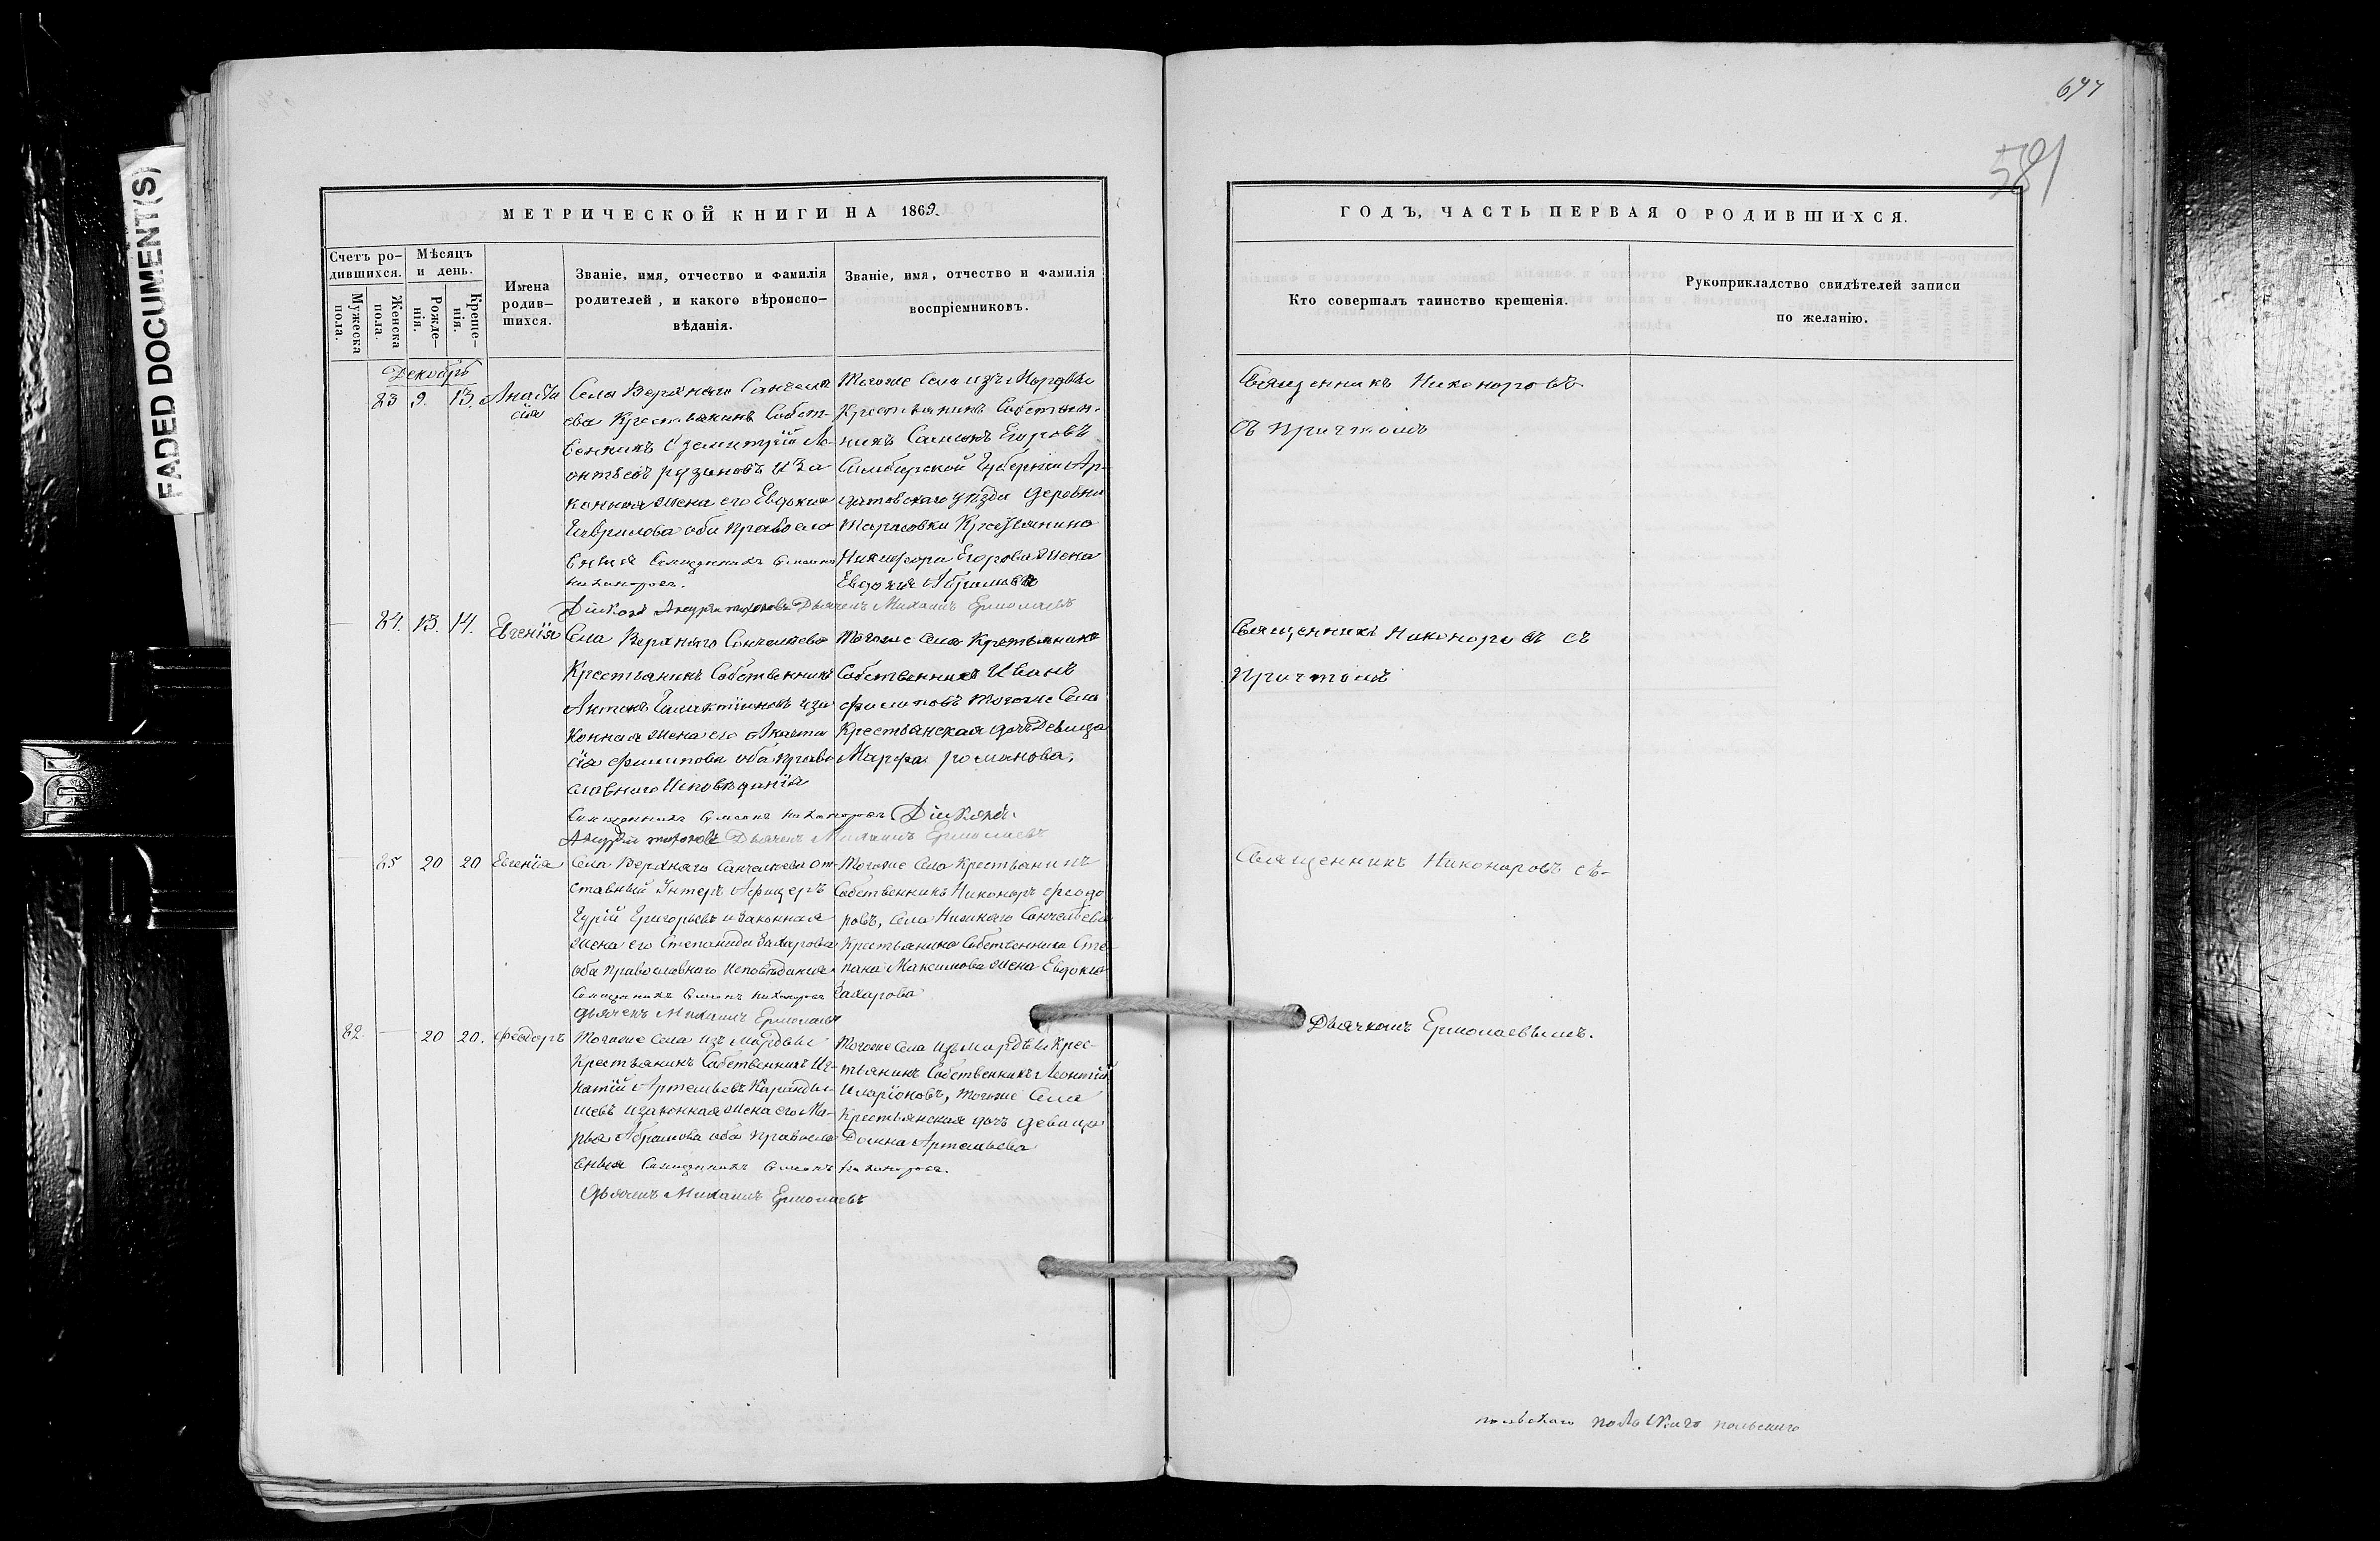 677
581
FADED DOCUMENT(S)
МЕТРИЧЕСКОЙ КНИГИ НА 1869
ГОДЪ, ЧАСТЬ ПЕРВАЯ О РОДИВШИХСЯ.
Счетъ ро-
дившихся.
Мужеска
пола.
Женска
пола.
Мѣсяцъ
и день.
Рожде-
нія.
Креще-
нія.
Имена
родив-
шихся.
Званіе, имя, отчество и фамилія
родителей, и какого вѣроиспо-
вѣданія.
Званіе, имя, отчество и фамилія
воспріемниковъ.
Кто совершалъ таинство крещенія.
Рукоприкладство свидѣтелей записи
по желанію.
Декабрь
23 9. 13. Анаста
сія
Села Верхняго Санчеле
ева Крестьянинъ Собст-
венникъ Дземитрій Ле-
онтьевъ рузановъ и За
конная жена его Евдокия
Гаврилова оба правосла
вныя Священникъ Симеонъ
Никаноровъ.
Тогоже Села изъ Мордвы
Крестьянинъ Собствен-
никъ Самсонъ Егоровъ
Симбирской Губерніи Ар-
датовскаго уѣзда деревни
Тарасовки Крестьянина
Никифора Егорова жена
Евдокия Абрамова
Дьяконъ Андрей тихоновъ Дьячекъ Михаилъ Ермолаевъ
Священникъ Никоноровъ
Съ причтомъ
24. 13. 14. Евгенія
Села Верхняго Санчелеева
Крестьянинъ Собственникъ
Антонъ Галактіоновъ и за
конная жена его Анаста
сія филипова оба право
славнаго Исповѣданія
Священникъ Симеонъ Никаноровъ Дьяконъ
Андрей тихоновъ Дьячекъ Михаилъ Ермолаевъ
Тогоже Села Крестьянинъ
Собственникъ Иванъ
филиповъ тогоже Села
Крестьянская дочь Девица
Марфа романова.
Священникъ Никоноровъ съ
Причтомъ
25 20 20 Евгенія
Села Верхняго Санчелеева от-
ставный Унтеръ Афицеръ
Гурій Григорьевъ и законная
жена его Степанида Захарова
оба православнаго исповѣдания
Священникъ Симеонъ Никаноровъ
Дьячекъ Михаилъ Ермолаевъ
Тогоже Села Крестьянинъ
Собственникъ Никоноръ феодо
ровъ, Села Нижняго Санчелеева
Крестьянина Собственника Сте-
пана Максимова жена Евдокия
Захарова
Священникъ Никоноровъ съ-
Дьячкомъ Ермолаевымъ.
82. — 20 20. феодоръ
Тогоже Села изъ Мордвы
Крестьянинъ Собственникъ Иг-
натій Артемьевъ Каранды-
шевъ и законная жена его Ма-
рья Абрамова оба правосла
вныя Священникъ Симеонъ Никаноровъ.
Дьячекъ Михаилъ Ермолаевъ
Тогоже Села изъ мордвы Крес-
тьянинъ Собственникъ Леонтій
Иларіоновъ, тогоже Села
Крестьянская дочь девица
Домна Артемьева
польскаго польскаго польскаго